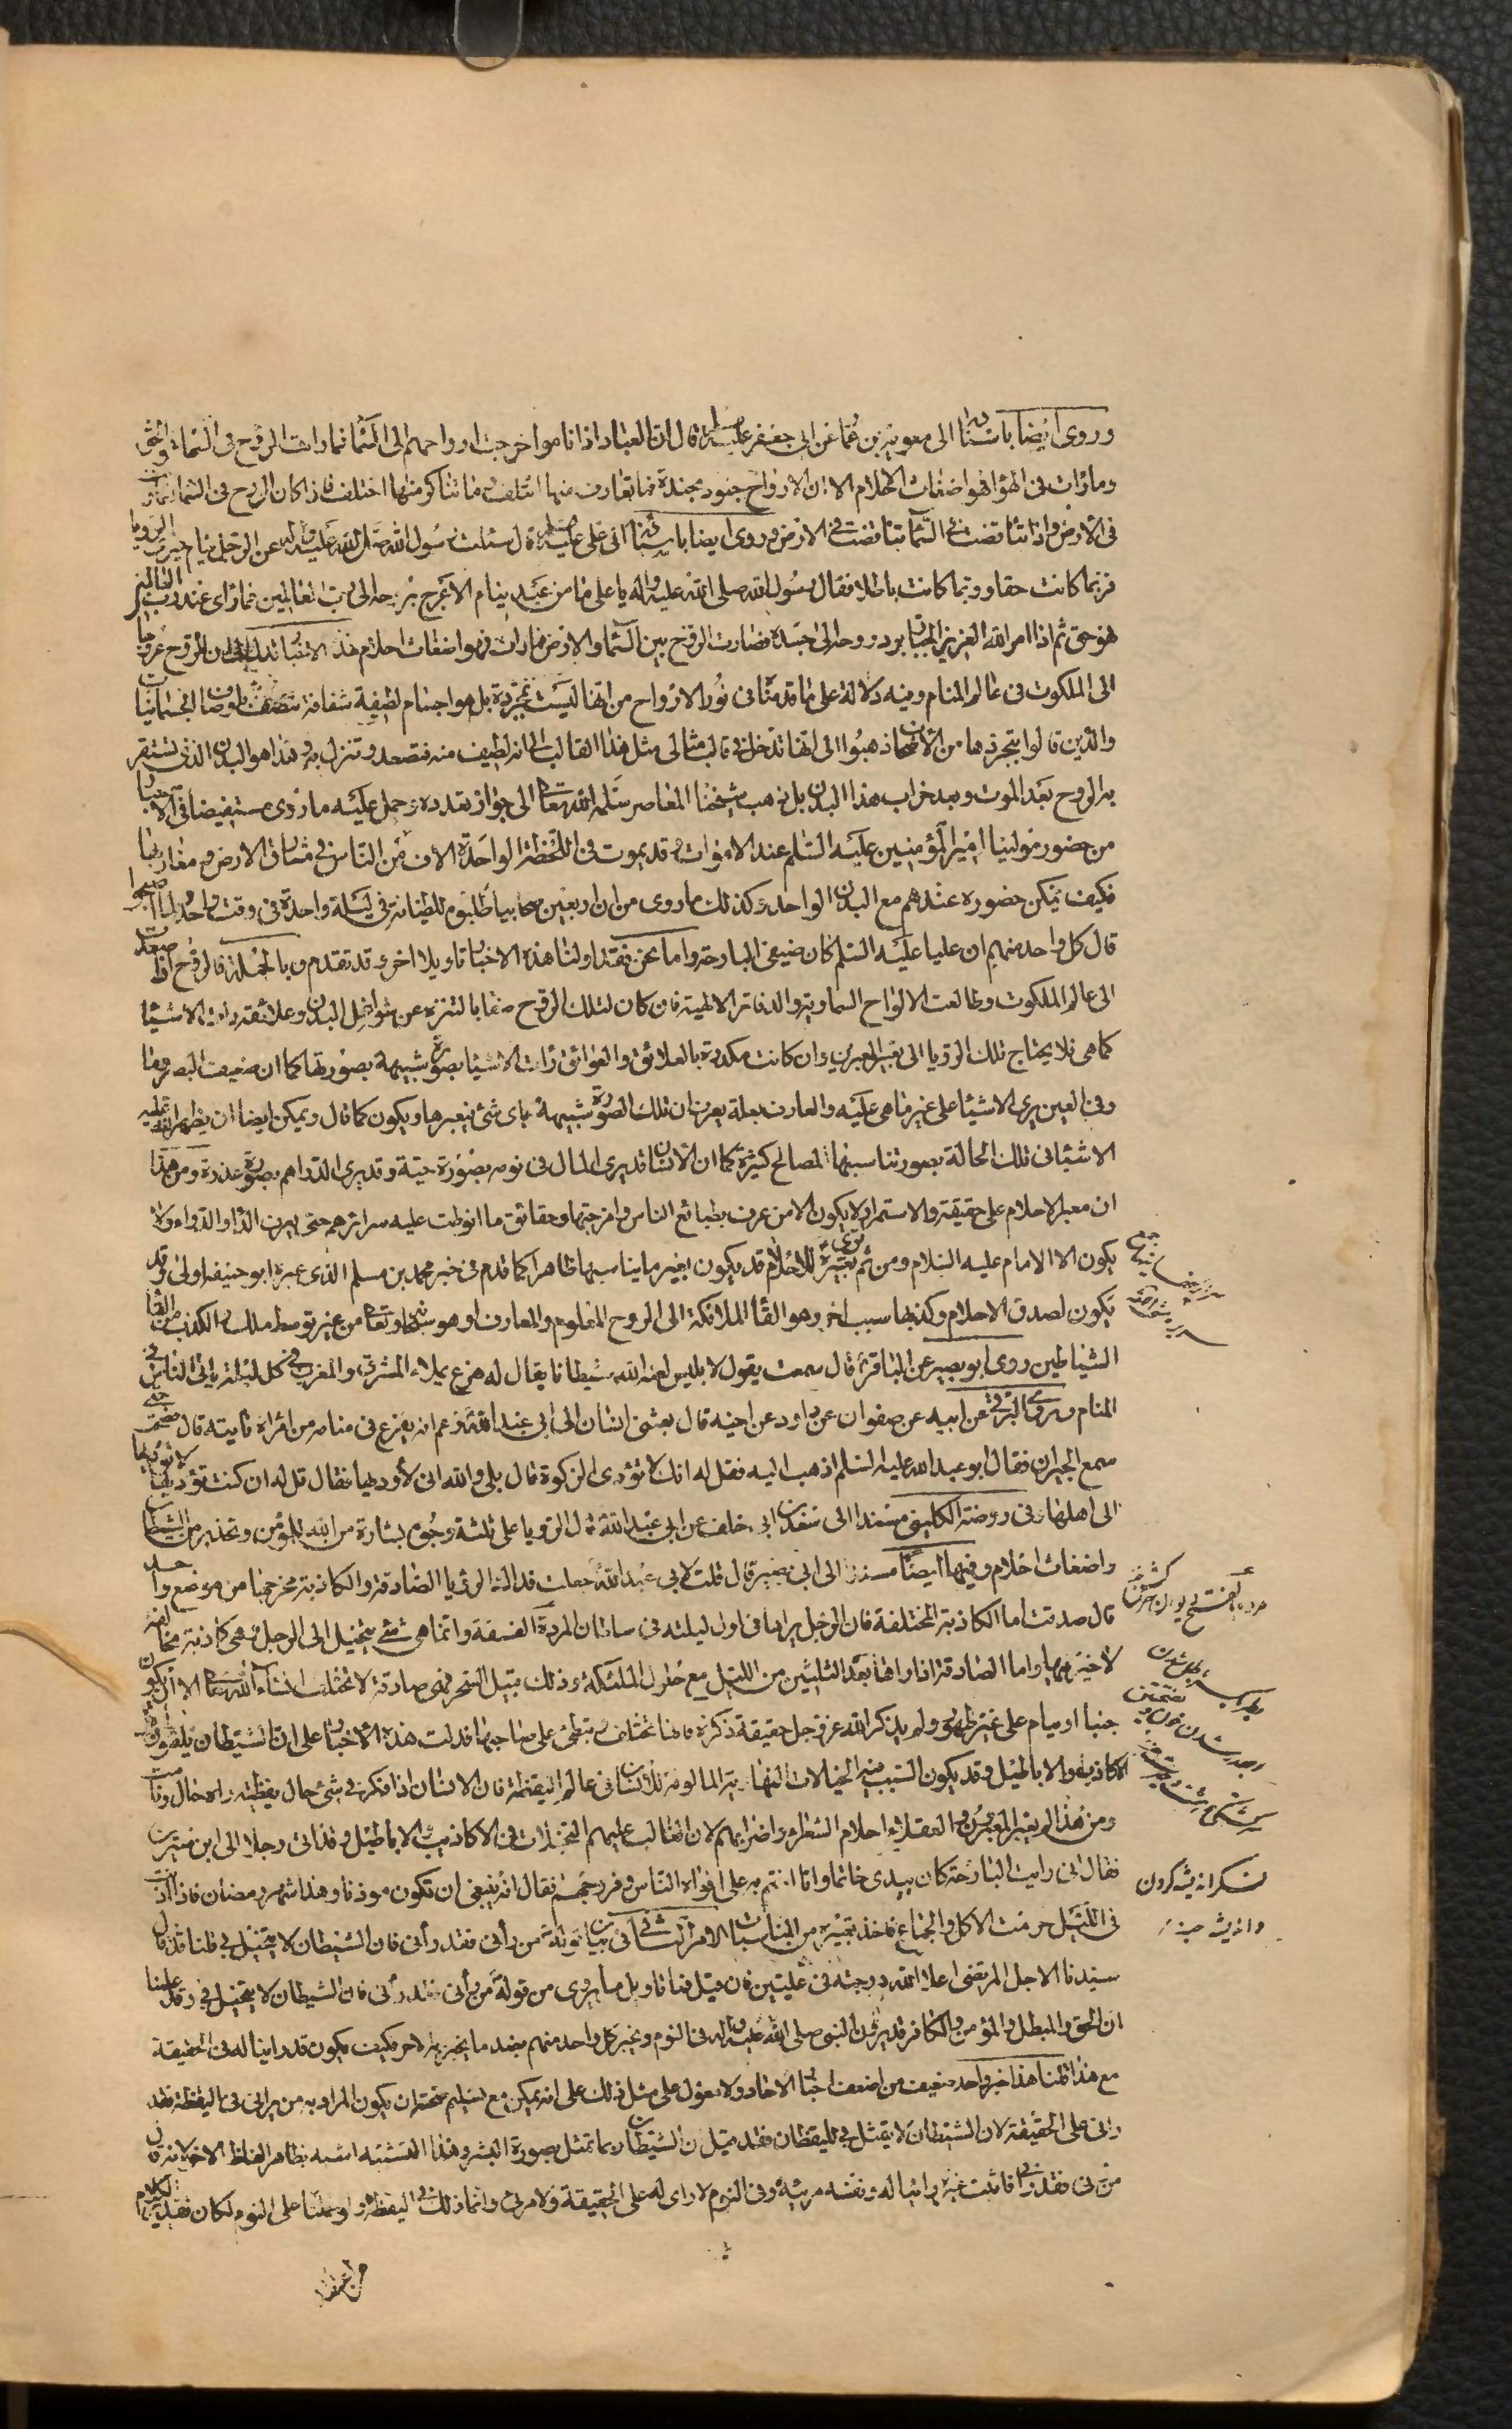 وروى ايضا باسناده الى معوية بن عمار عن ابى جعفر عليه السلام قال ان العباد اذا ناموا خرجت ارواحهم الى السماء فما رات الروح فى السماء فهو الحق
وما رات فى الهواء فهو اضغاث الاحلام الا ان الارواح جنود مجندة فما تعارف منها ائتلف وما تناكر منها اختلف فاذا كان الروح فى السماء تعارفت
فى الارض واذا تناقضت فى السماء تناقضت فى الارض وروى ايضا باسناده الى على عليه السلام قال سئلت رسول الله صلى الله عليه واله عن الرجل ينام فيرى الرويا
فربما كانت حقا وربما كانت باطلا فقال رسول الله صلى الله عليه واله يا على ما من عبد ينام الا عرج بروحه الى رب العالمين فما راى عند رب العالمين
فهو حق ثم اذا امر الله العزيز الجبار برد روحه الى جسده فصارت الروح بين السماء والارض فما رات فهو اضغاث احلام هذه الاخبار تدل على ان للروح عروجا
الى الملكوت فى عالم المنام وفيه دلالة على ما قدمنا فى نور الارواح من انها ليست بمجردة بل هو اجسام لطيفة شفافة تتصف باوصاف الجسمانيات
والذين قالوا بتجردها من الاصحاب ذهبوا الى انها تدخل فى قالب مثالى مثل هذا القالب الا انه لطيف منه فتصعد وتنزل به وهذا هو البدن الذى تستقر
به الروح بعد الموت وبعد خراب هذا البدن بل ذهب شيخنا المعاصر سلمه الله تعالى الى جواز تعدده وحمل عليه ما روى مستفيضا فى الاخبار
من حضور مولينا امير المؤمنين عليه السلم عند الاموات وقد يموت فى اللحظة الواحدة الاف من الناس فى مشارق الارض ومغاربها
فكيف يمكن حضوره عندهم مع البدن الواحد وكذلك ما روى من ان اربعين صحابيا طلبوه للضيافة فى ليلة واحدة فى وقت واحد فلما اصبحوا
قال كل واحد منهم ان عليا عليه السلم كان ضيفى البارحة واما نحن فقد اولنا هذه الاخبار تاويلا اخر وقد تقدم وبالجملة فالروح اذا صعدت
الى عالم الملكوت وطالعت الالواح السماوية والدفاتر الالهية فان كان لتلك الروح صفا بالتنزه عن شواغل البدن وعلائقه رات الاشياء
كما هى فلا يحتاج تلك الرؤيا الى تعبير المعبرين وان كانت مكدرة بالعلائق والعوائق رات الاشياء بصورة شبيهة بصورتها كما ان ضعيف البصر وما
وفى العين يرى الاشياء على غير ما هى عليه والعارف بعلة يعرف ان تلك الصورة شبيهة باى شئ فيعبرها ويكون كما قال ويمكن ايضا ان يظهر الله عليه
الاشياء فى تلك الحالة بصورة تناسبها لمصالح كثيرة كما ان الانسان قد يرى المال فى نومه بصورة حية وقد يرى الدراهم بصورة عذرة ومن هذا
ان معبر الاحلام على حقيقته والاستمرار لا يكون الا من عرف بطبائع الناس وامزجتها وحقائق ما انطوت عليه سرائرهم حتى يعرف الداء والدواء ولا
يكون الا الامام عليه السلام ومن ثم ترى تعبيره للاحلام قد يكون بغير ما يناسبها ظاهرا كما قدم فى خبر محمد بن مسلم الذى عبره ابو حنيفة اولى وقد
يكون لصدق الاحلام وكذبها سبب اخر وهو القاء الملائكة الى الروح العلوم والمعارف او هو سبحانه وتعالى من غير توسط ملك والكذب من القاء
الشياطين روى ابو بصير عن الباقر قال سمعته يقول لابليس لعنه الله شيطانا يقال له هزع يملاء المشرق والمغرب فى كل ليلة ياتى الناس فى
المنام وروى البرقى عن ابيه عن صفوان عن داود عن اخيه قال بعثنى انسان الى ابى عبد الله زعم انه يفزع فى منامه من امراة تاتيه قال فصحت حتى
سمع الجيران فقال ابو عبد الله عليه السلم اذهب اليه فقل له انك لا تؤدى الزكوة قال بلى والله انى لاوديها فقال قل له ان كنت تؤديها لا تؤديها
الى اهلها وفى روضة الكلينى مسندا الى سعد بن ابى خلف عن ابى عبد الله قال الرويا على ثلثة وجوه بشارة من الله للمؤمن وتحذير من الشيطان
واضغاث احلام وفيها ايضا مسندا الى ابى بصير قال قلت لابى عبد الله جعلت فداك الرؤيا الصادقة والكاذبة مخرجهما من موضع واحد
قال صدقت اما الكاذبة المختلفة فان الرجل يراها فى اول ليلته فى سلطان المردة الفسقة وانما هى شئ يتخيل الى الرجل وهى كاذبة مخالفة
لا خير فيها واما الصادقة اذا راها بعد الثلثين من الليل مع حلول الملئكة وذلك قبل السحر فهى صادقة لا تختلف انشاء الله تعالى الا ان يكون
جنبا او ينام على غير طهور ولم يذكر الله عز وجل حقيقة ذكره فانها تختلف وتبطئ على صاحبها فدلت هذه الاخبار على ان الشيطان يلقى اليه
الاكاذيب والاباطيل وقد يكون السبب فيه الخيالات النهارية المالوفة للانسان فى عالم اليقظة فان الانسان اذا فكر فى شئ حال يقظته راه حال نومه
ومن هذا لم يعبر المعبرون والعقلاء احلام الشعراء واضرابهم لان الغالب عليهم التخيلات فى الاكاذيب والاباطيل وقد اتى رجلا الى ابن سيرين
فقال انى رايت البارحة كان بيدى خاتما وانا اختم به على افواه الناس وفروجهم فقال انه ينبغى ان تكون موذنا وهذا شهر رمضان فاذا اذنت
فى الليل حرمت الاكل والجماع فاخذ تعبيره من المناسبات الامر الثانى فى بيان قوله من رأنى فقد رأنى فان الشيطان لا يتخيل بى قلنا قد قال
سيدنا الاجل المرتضى اعلا الله درجته فى عليين فان قيل فما تاويل ما يروى من قوله من رأنى فقد رأنى فان الشيطان لا يتخيل بى وقد علمنا
ان المحق والمبطل والمؤمن والكافر قد يرون النبى صلى الله عليه واله فى النوم ويخبر كل واحد منهم بضد ما يخبر به الاخر فكيف يكون قد راينا له فى الحقيقة
مع هذا قلنا هذا خبر واحد ضعيف من اضعف اخبار الاحاد ولا معول على مثل ذلك على انه يمكن مع تسليم صحته ان يكون المراد به من يرانى فى اليقظة فقد
رانى على الحقيقة لان الشيطان لا يتمثل بى لليقظان فقد قيل ان الشيطان ربما تمثل بصورة البشر وهذا التشبه اشبه بظاهر الفاظ الاخبار لانه قال
من رانى فقد رانى فاثبت غيره رائيا له ونفسه مرئية وفى النوم لا راى له على الحقيقة ولا مرئى وانما ذلك فى اليقظة ولو حملنا على النوم لكان تقدير الكلام
فكر انديشه كردن